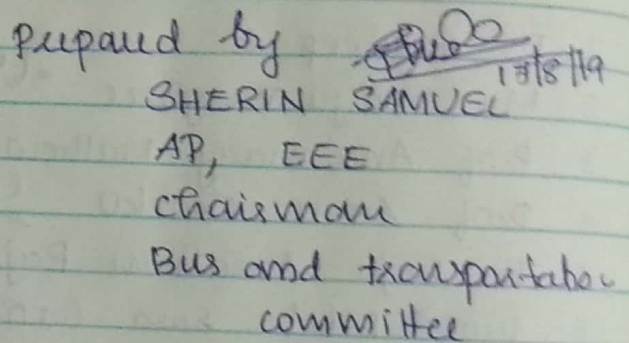 Prepared by
13/8/19
SHERIN SAMUEL
AP, EEE
Chairman
Bus and transportation
committee